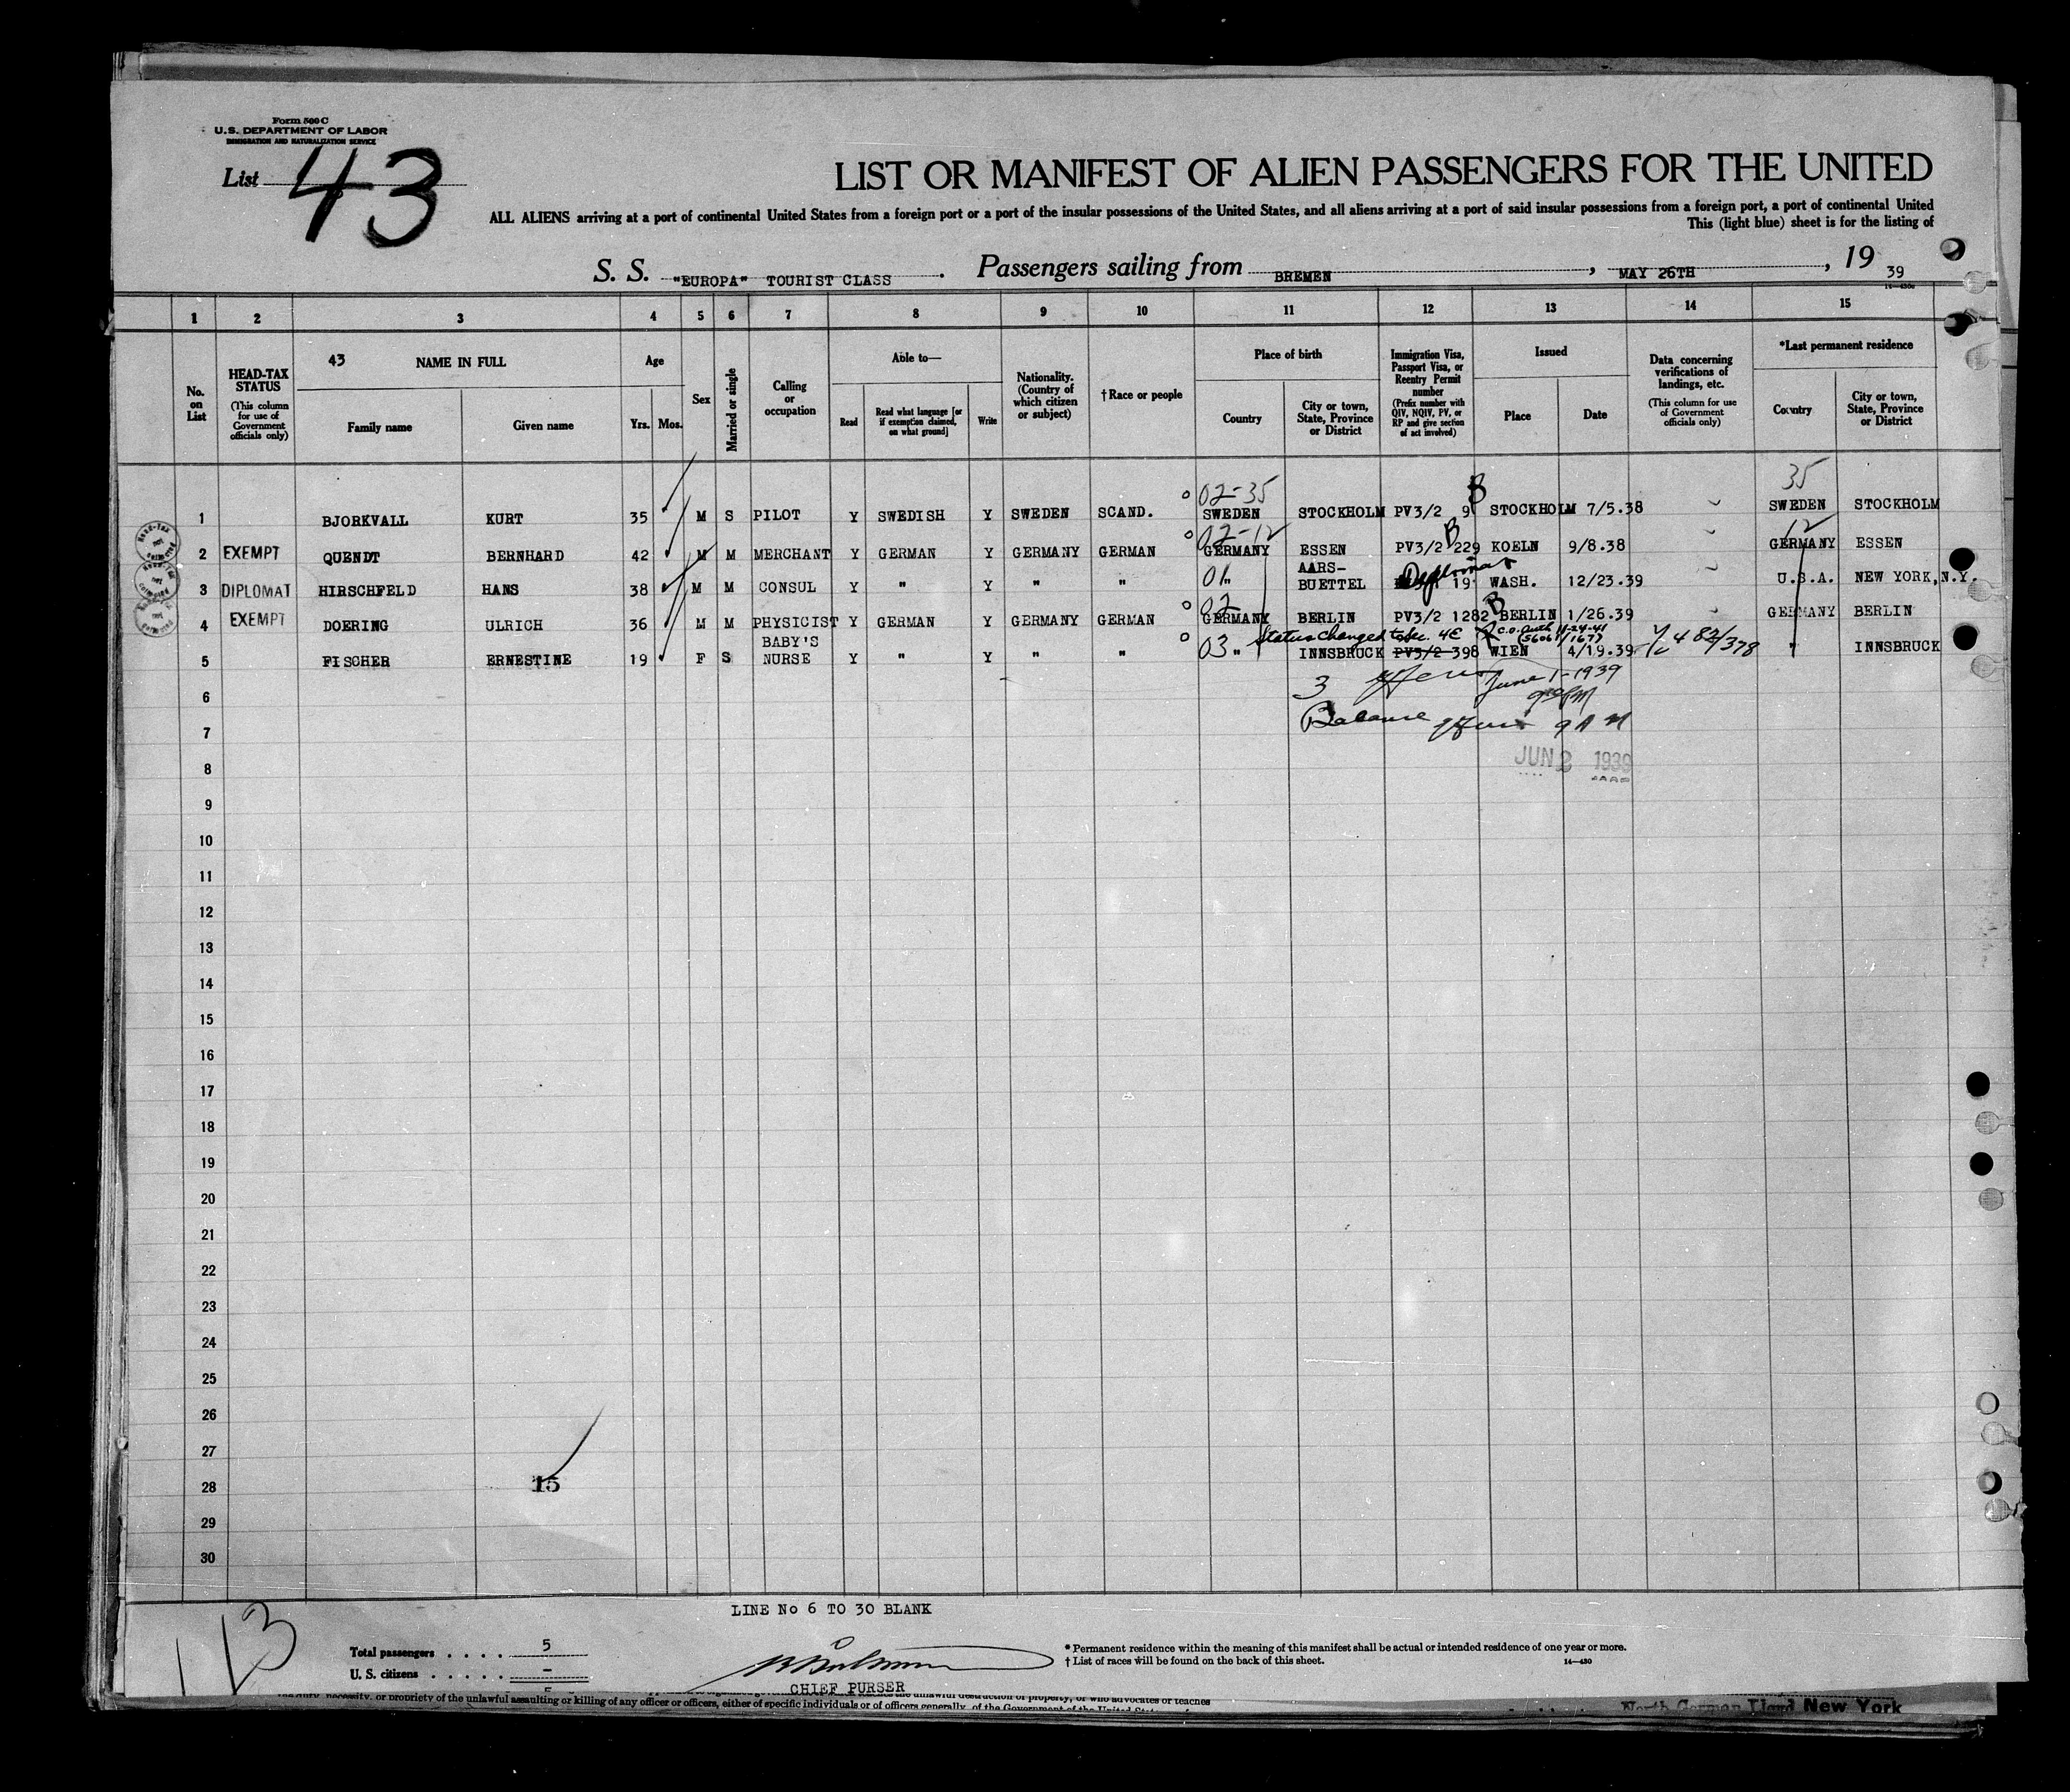 Form 500 C
U.S. DEPARTMENT OF LABOR
IMMIGRATION AND NATURALIZATION SERVICE
List 43
LIST OR MANIFEST OF ALIEN PASSENGERS FOR THE UNITED
ALL ALIENS arriving at a port of continental United States from a foreign port or a port of the insular possessions of the United States, and all aliens arriving at a port of said insular possessions from a foreign port, a port of continental United
This (light blue) sheet is for the listing of
S. S. "EUROPA" TOURIST CLASS. Passengers sailing from BREMEN, MAY 26TH, 19 39
1 2 3 4 5 6 7 8 9 10 11 12 13 14 15
No. on List
HEAD-TAX STATUS (This column for use of Government officials only)
43 NAME IN FULL
Family name Given name
Age
Yrs. Mos.
Sex
Married or single
Calling or occupation
Able to—
Read Read what language [or if exemption claimed, on what ground] Write
Nationality. (Country of which citizen or subject)
† Race or people
Place of birth
Country City or town, State, Province or District
Immigration Visa, Passport Visa, or Reentry Permit number (Prefix number with QIV, NQIV, PV, or RP and give section of act involved)
Issued
Place Date
Data concerning verifications of landings, etc. (This column for use of Government officials only)
*Last permanent residence
Country City or town, State, Province or District
02-35 B 35
1 BJORKVALL KURT 35 M S PILOT Y SWEDISH Y SWEDEN SCAND. SWEDEN STOCKHOLM PV3/2 9 STOCKHOLM 7/5.38 SWEDEN STOCKHOLM
02-12 B 12
2 EXEMPT QUENDT BERNHARD 42 M M MERCHANT Y GERMAN Y GERMANY GERMAN GERMANY ESSEN PV3/2 229 KOELN 9/8.38 GERMANY ESSEN
3 DIPLOMAT HIRSCHFELD HANS 38 M M CONSUL Y " Y " " 01 " AARS-BUETTEL Diplomat 19 WASH. 12/23.39 U.S.A. NEW YORK, N.Y.
02 B
4 EXEMPT DOERING ULRICH 36 M M PHYSICIST Y GERMAN Y GERMANY GERMAN GERMANY BERLIN PV3/2 1282 BERLIN 1/26.39 GERMANY BERLIN
Status changed to Sec. 4E C.O. Auth 11-24-41
5 FISCHER ERNESTINE 19 F S BABY'S NURSE Y " Y " " 03 " INNSBRUCK PV3/2 398 WIEN 4/19.39 " INNSBRUCK
6
3 June 1-1939
7
Balance 9 AM
8
JUN 2 1939
9
10
11
12
13
14
15
16
17
18
19
20
21
22
23
24
25
26
27
28
15
29
30
LINE No 6 TO 30 BLANK
113
Total passengers . . . . 5
U. S. citizens . . . . . . –
CHIEF PURSER
* Permanent residence within the meaning of this manifest shall be actual or intended residence of one year or more.
† List of races will be found on the back of this sheet.
14—430
necessity, or propriety of the unlawful assaulting or killing of any officer or officers, either of specific individuals or of officers generally, of the Government of the United
unlawful destruction of property, or who advocates or teaches
North German Lloyd New York